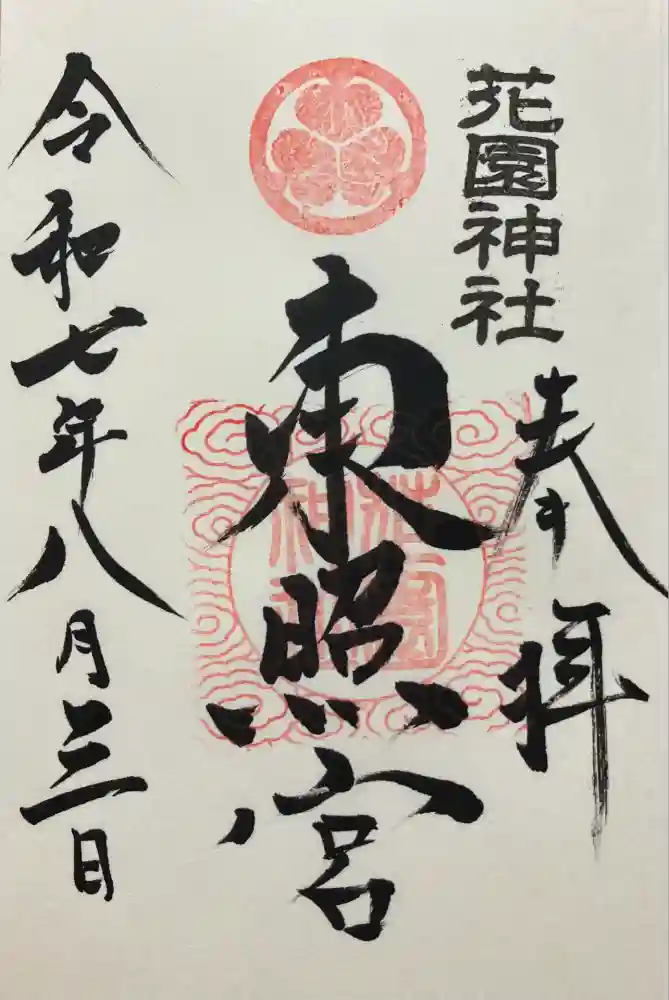 花園神社
奉拝
東照宮
花園
神社
令和七年八月三日